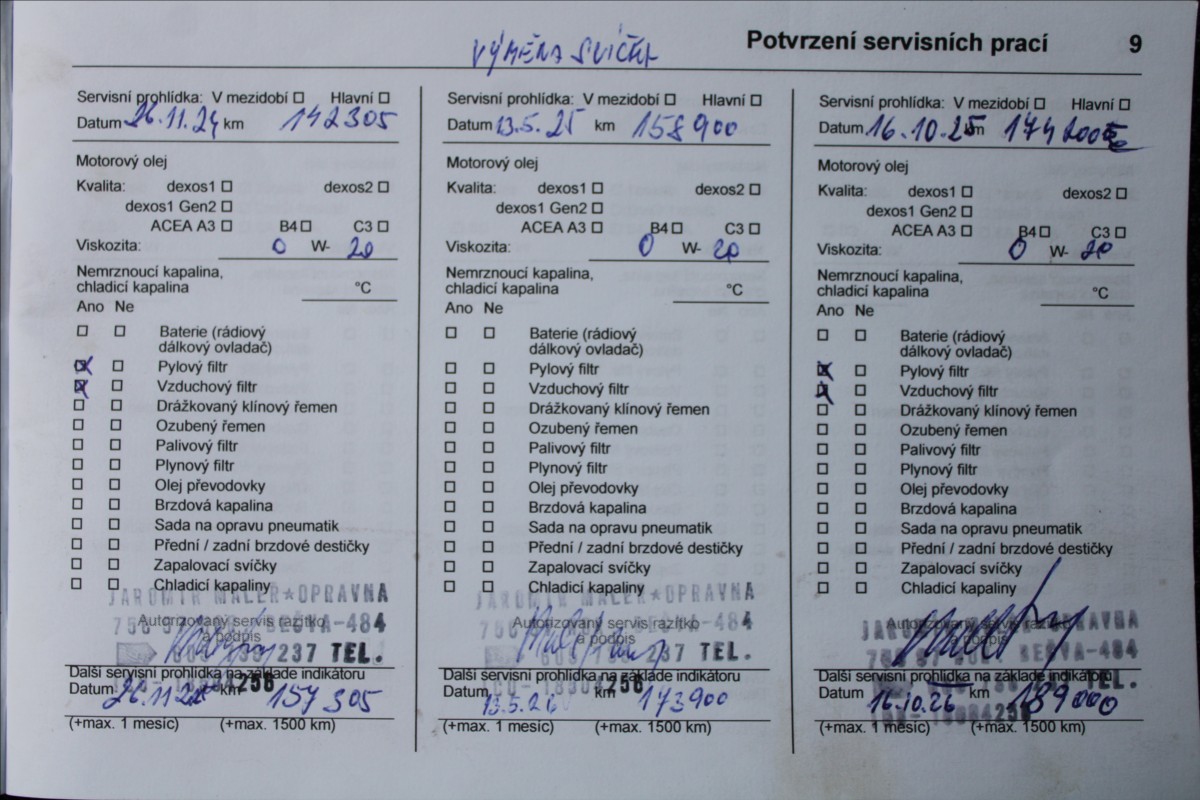 Potvrzení servisních prací 9
VÝMĚNA SVÍČEK
Servisní prohlídka: V mezidobí Hlavní
Datum 26.11.24 km 142305
Motorový olej
Kvalita: dexos1 dexos2
dexos1 Gen2
ACEA A3 B4 C3
Viskozita: 0 W- 20
Nemrznoucí kapalina,
chladicí kapalina °C
Ano Ne
Baterie (rádiový
dálkový ovladač)
Pylový filtr
Vzduchový filtr
Drážkovaný klínový řemen
Ozubený řemen
Palivový filtr
Plynový filtr
Olej převodovky
Brzdová kapalina
Sada na opravu pneumatik
Přední / zadní brzdové destičky
Zapalovací svíčky
Chladicí kapaliny
JAROMÍR MALER★OPRAVNA
Autorizovaný servis razítko
BEŠVA-484
a podpis
237 TEL.
Další servisní prohlídka na základe indikátoru
Datum 26.11.25 km 157305
(+max. 1 mesíc) (+max. 1500 km)
Servisní prohlídka: V mezidobí Hlavní
Datum 13.5.25 km 158900
Motorový olej
Kvalita: dexos1 dexos2
dexos1 Gen2
ACEA A3 B4 C3
Viskozita: 0 W- 20
Nemrznoucí kapalina,
chladicí kapalina °C
Ano Ne
Baterie (rádiový
dálkový ovladač)
Pylový filtr
Vzduchový filtr
Drážkovaný klínový řemen
Ozubený řemen
Palivový filtr
Plynový filtr
Olej převodovky
Brzdová kapalina
Sada na opravu pneumatik
Přední / zadní brzdové destičky
Zapalovací svíčky
Chladicí kapaliny
JAROMÍR MALER★OPRAVNA
Autorizovaný servis razítko
BEŠVA-484
a podpis
237 TEL.
Další servisní prohlídka na základe indikátoru
Datum 13.5.26 km 173900
(+max. 1 mesíc) (+max. 1500 km)
Servisní prohlídka: V mezidobí Hlavní
Datum 16.10.25 km
Motorový olej
Kvalita: dexos1 dexos2
dexos1 Gen2
ACEA A3 B4 C3
Viskozita: 0 W- 20
Nemrznoucí kapalina,
chladicí kapalina °C
Ano Ne
Baterie (rádiový
dálkový ovladač)
Pylový filtr
Vzduchový filtr
Drážkovaný klínový řemen
Ozubený řemen
Palivový filtr
Plynový filtr
Olej převodovky
Brzdová kapalina
Sada na opravu pneumatik
Přední / zadní brzdové destičky
Zapalovací svíčky
Chladicí kapaliny
OPRAVNA
Autorizovaný servis razítko
a podpis
BEŠVA-484
TEL.
Další servisní prohlídka na základe indikátoru
Datum 16.10.26 km 189000
(+max. 1 mesíc) (+max. 1500 km)